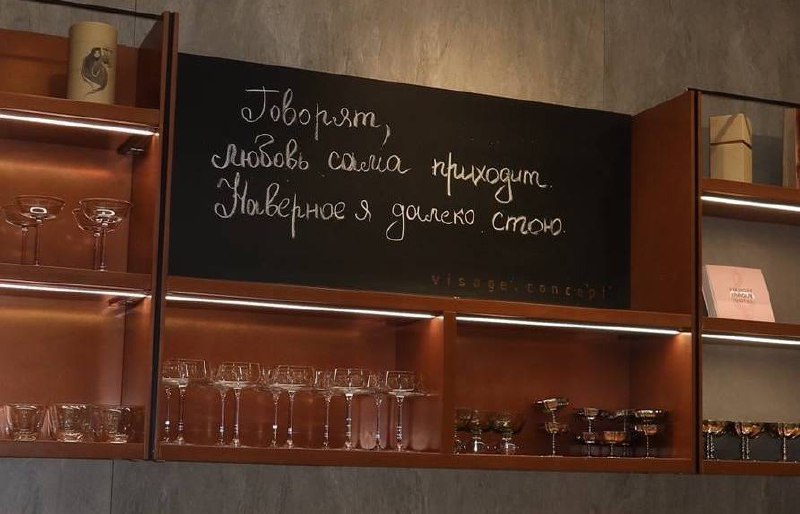 Говорят,
любовь сама приходит.
Наверное я далеко стою.
visage.concept